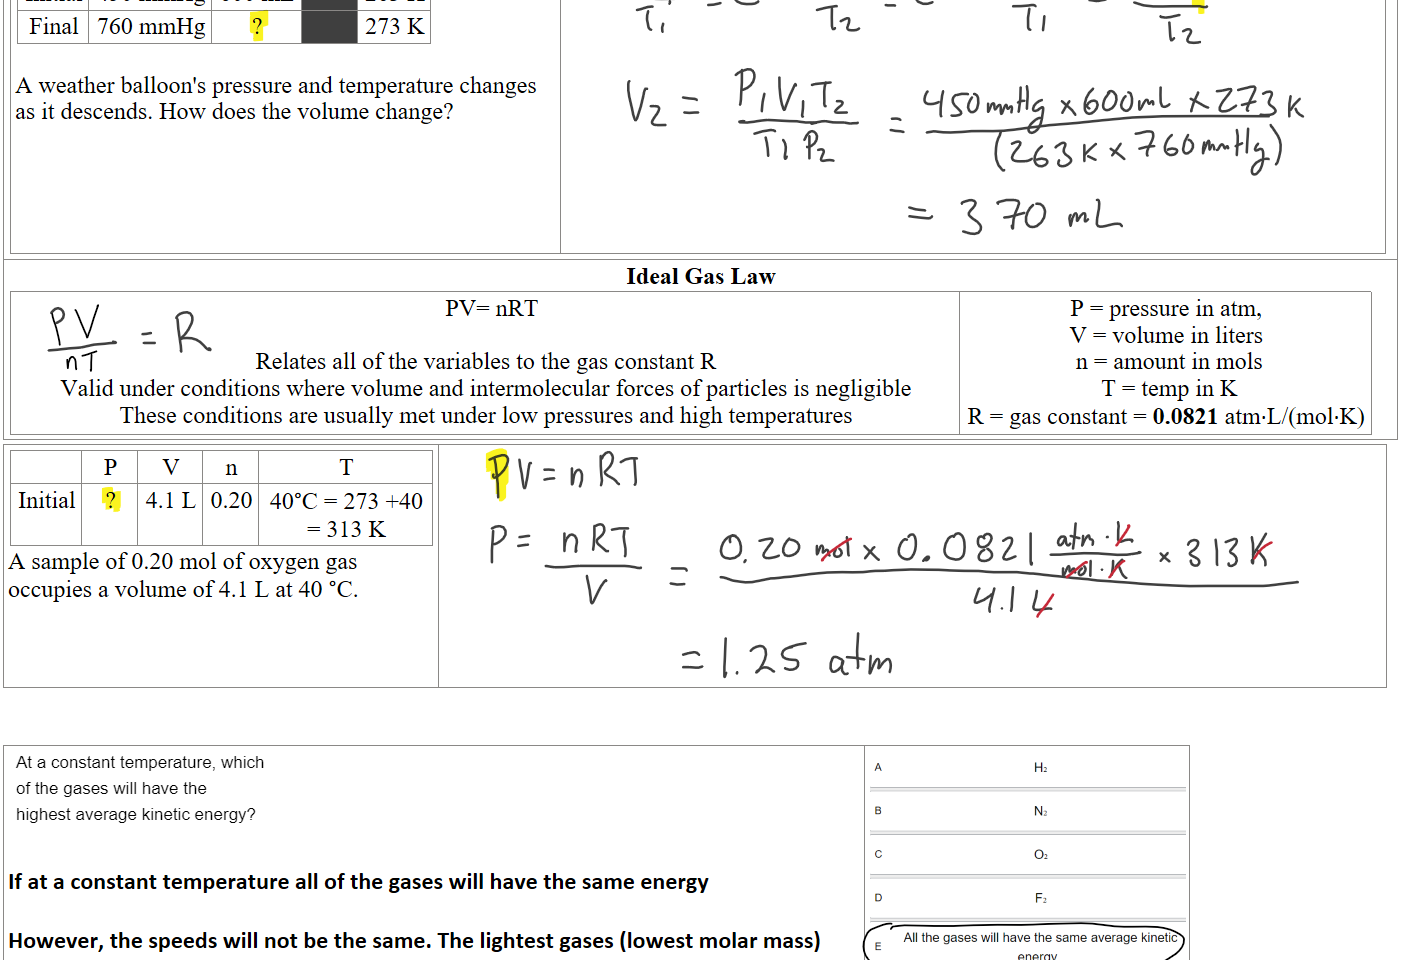 Final 760 mmHg ? 273 K
T₁ T₂ T₁ T₂
A weather balloon's pressure and temperature changes
as it descends. How does the volume change?
V₂ = P₁V₁T₂ / T₁P₂ = 450 mmHg x 600 mL x 273 K / (263 K x 760 mmHg)
= 370 mL
Ideal Gas Law
PV / nT = R
PV= nRT
Relates all of the variables to the gas constant R
Valid under conditions where volume and intermolecular forces of particles is negligible
These conditions are usually met under low pressures and high temperatures
P = pressure in atm,
V = volume in liters
n = amount in mols
T = temp in K
R = gas constant = 0.0821 atm·L/(mol·K)
P V n T
Initial ? 4.1 L 0.20 40°C = 273 +40
= 313 K
A sample of 0.20 mol of oxygen gas
occupies a volume of 4.1 L at 40 °C.
PV = nRT
P = nRT / V = 0.20 mol x 0.0821 atm·L / mol·K x 313K / 4.1 L
= 1.25 atm
At a constant temperature, which
of the gases will have the
highest average kinetic energy?
If at a constant temperature all of the gases will have the same energy
However, the speeds will not be the same. The lightest gases (lowest molar mass)
A H₂
B N₂
C O₂
D F₂
E All the gases will have the same average kinetic
energy